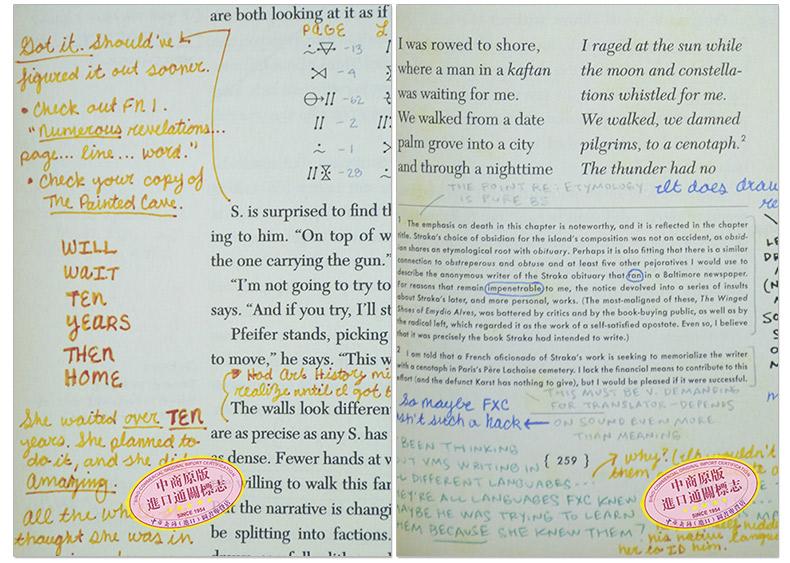 are both looking at it as if
PAGE
Got it. Should've
figured it out sooner.
• Check out FN 1.
"Numerous revelations...
page... line... word."
• Check your copy of
The Painted Cave.
-13
-9
-62
-2
-1
-28
WILL
WAIT
TEN
YEARS
THEN
HOME
S. is surprised to find th
ing to him. "On top of w
the one carrying the gun."
"I'm not going to try to
says. "And if you try, I'll st
Pfeifer stands, picking
to move," he says. "This w
• Had Art History mi
realize until I got t
The walls look differen
are as precise as any S. has
as dense. Fewer hands at w
willing to walk this far
the narrative is changi
be splitting into factions.
She waited over TEN
years. She planned to
do it, and she did
Amazing.
all the wh
thought she was in
中商原版
進口通關標志
SINCE 1954
I was rowed to shore,
where a man in a kaftan
was waiting for me.
We walked from a date
palm grove into a city
and through a nighttime
I raged at the sun while
the moon and constella-
tions whistled for me.
We walked, we damned
pilgrims, to a cenotaph.2
The thunder had no
THE POINT RE: ETYMOLOGY
IS PURE BS
It does draw
re
1 The emphasis on death in this chapter is noteworthy, and it is reflected in the chapter
title. Straka's choice of obsidian for the island's composition was not an accident, as obsid-
ian shares an etymological root with obituary. Perhaps it is also fitting that there is a similar
connection to obstreperous and obtuse and at least five other pejoratives I would use to
describe the anonymous writer of the Straka obituary that ran in a Baltimore newspaper.
For reasons that remain impenetrable to me, the notice devolved into a series of insults
about Straka's later, and more personal, works. (The most-maligned of these, The Winged
Shoes of Emydio Alves, was battered by critics and by the book-buying public, as well as by
the radical left, which regarded it as the work of a self-satisfied apostate. Even so, I believe
that it was precisely the book Straka had intended to write.)
2 I am told that a French aficionado of Straka's work is seeking to memorialize the writer
with a cenotaph in Paris's Père Lachaise cemetery. I lack the financial means to contribute to this
effort (and the defunct Karst has nothing to give), but I would be pleased if it were successful.
THIS MUST BE V. DEMANDING
FOR TRANSLATOR - DEPENDS
ON SOUND EVEN MORE
THAN MEANING
So maybe FXC
isn't such a hack
{ 259 }
BEEN THINKING
OUT VMS WRITING IN
L DIFFERENT LANGUAGES...
THEY'RE ALL LANGUAGES FXC KNEW
MAYBE HE WAS TRYING TO LEARN
THEM BECAUSE SHE KNEW THEM?
why?
them
his native langua
her to ID him.
中商原版
進口通關標志
SINCE 1954